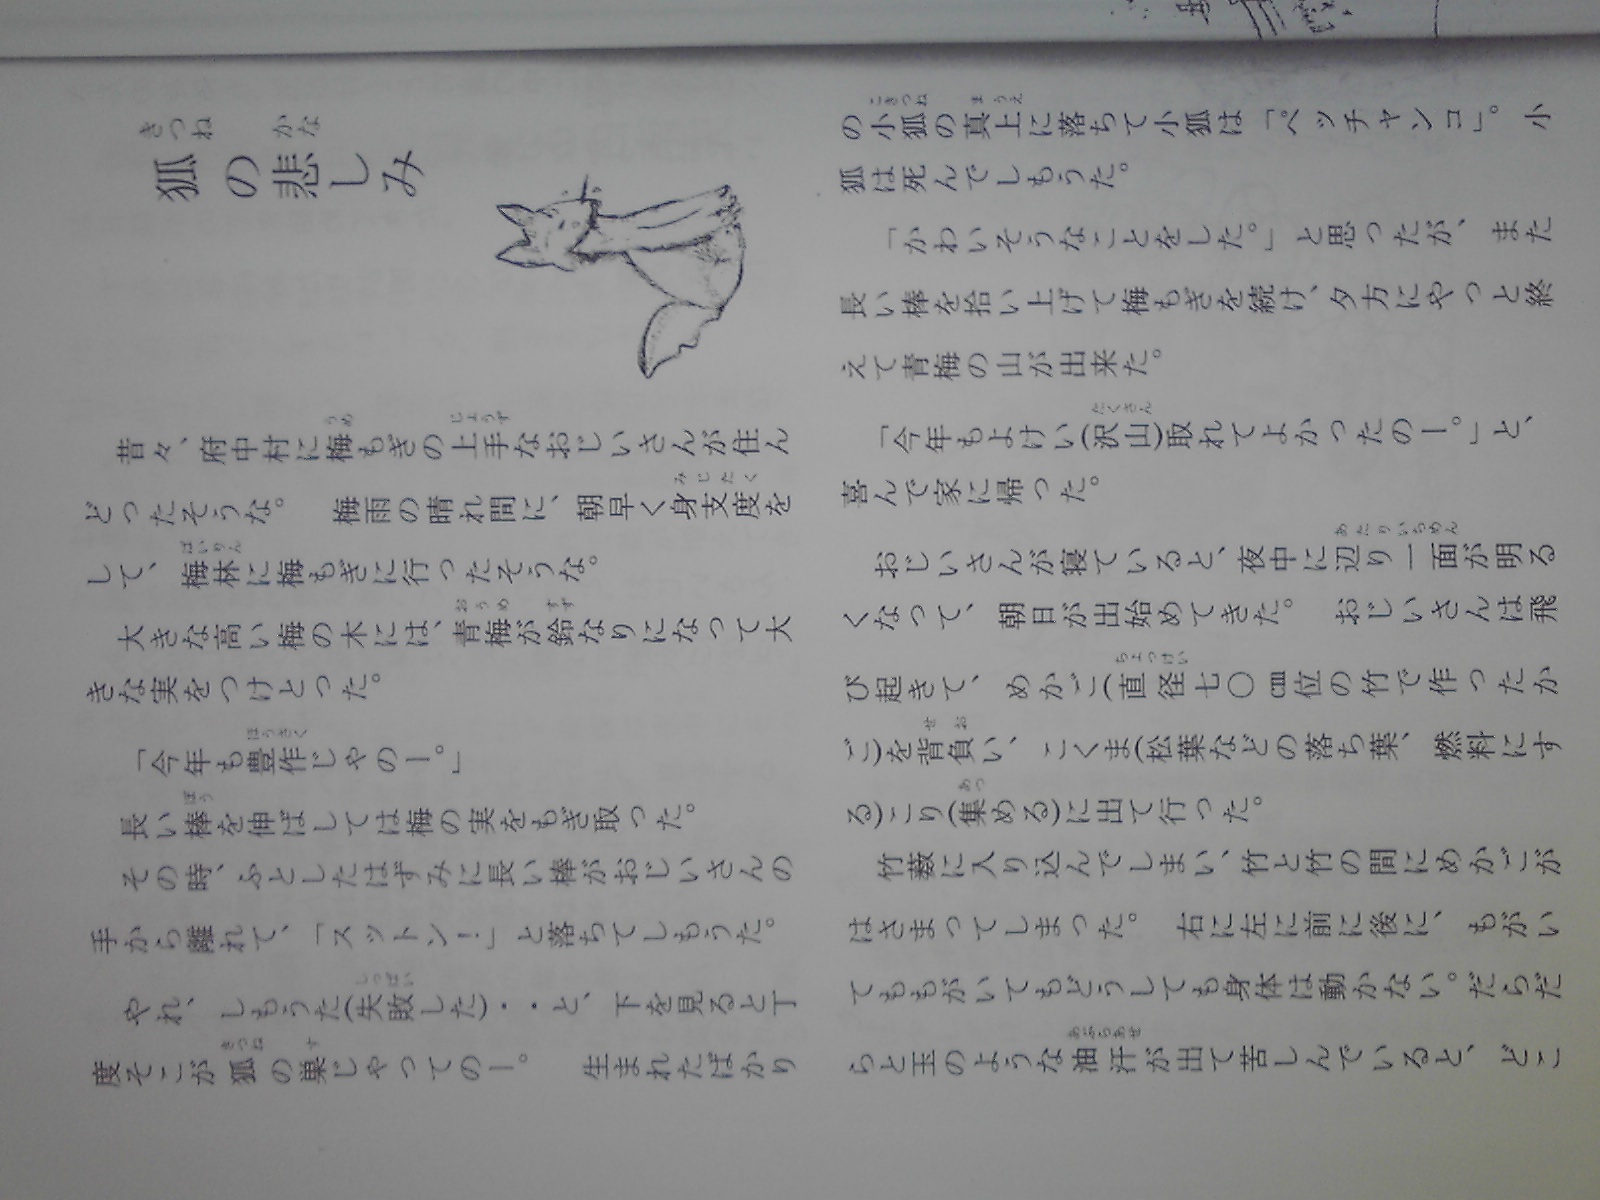 狐の悲しみ
昔々、府中村に梅もぎの上手なおじいさんが住ん
どったそうな。　梅雨の晴れ間に、朝早く身支度を
して、梅林に梅もぎに行ったそうな。
大きな高い梅の木には、青梅が鈴なりになって大
きな実をつけとった。
「今年も豊作じゃのー。」
長い棒を伸ばしては梅の実をもぎ取った。
その時、ふとしたはずみに長い棒がおじいさんの
手から離れて、「スットン！」と落ちてしもうた。
やれ、しもうた(失敗した)・・と、下を見ると丁
度そこが狐の巣じゃってのー。　生まれたばかり
の小狐の真上に落ちて小狐は「ペッチャンコ」。小
狐は死んでしもうた。
「かわいそうなことをした。」と思ったが、また
長い棒を拾い上げて梅もぎを続け、夕方にやっと終
えて青梅の山が出来た。
「今年もよけい(沢山)取れてよかったのー。」と、
喜んで家に帰った。
おじいさんが寝ていると、夜中に辺り一面が明る
くなって、朝日が出始めてきた。　おじいさんは飛
び起きて、めかご(直径七〇㎝位の竹で作ったか
ご)を背負い、こくま(松葉などの落ち葉、燃料にす
る)こり(集める)に出て行った。
竹薮に入り込んでしまい、竹と竹の間にめかごが
はさまってしまった。　右に左に前に後に、もがい
てももがいてもどうしても身体は動かない。だらだ
らと玉のような油汗が出て苦しんでいると、どこ